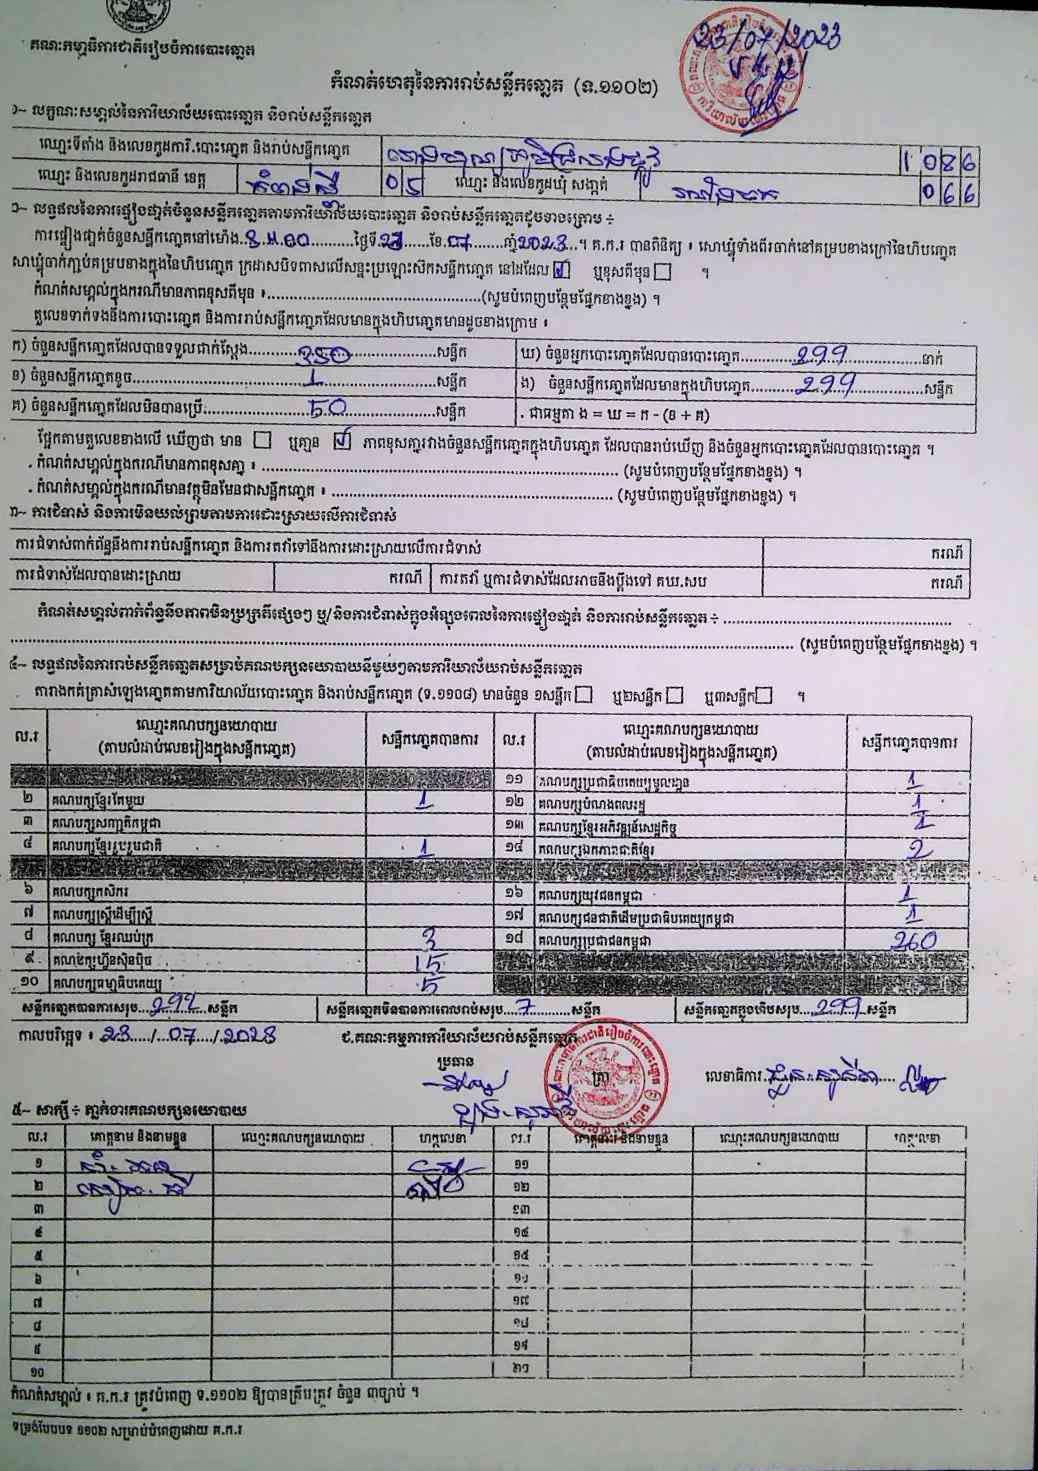 គណៈកម្មាធិការជាតិរៀបចំការបោះឆ្នោត
23/07/2023
កំណត់ហេតុនៃការរាប់សន្លឹកឆ្នោត (ទ.១១០២)
១~ លក្ខណៈសម្គាល់នៃការិយាល័យបោះឆ្នោត និងរាប់សន្លឹកឆ្នោត
ឈ្មោះទីតាំង និងលេខកូដការិ.បោះឆ្នោត និងរាប់សន្លឹកឆ្នោត 1086
ឈ្មោះ និងលេខកូដរាជធានី ខេត្ត កំពង់ស្ពឺ 05 ឈ្មោះ និងលេខកូដឃុំ សង្កាត់ 066
២~ លទ្ធផលនៃការផ្ទៀងផ្ទាត់ចំនួនសន្លឹកឆ្នោតតាមការិយាល័យបោះឆ្នោត និងរាប់សន្លឹកឆ្នោតដូចខាងក្រោម ÷
ការផ្ទៀងផ្ទាត់ចំនួនសន្លឹកឆ្នោតនៅម៉ោង ថ្ងៃទី.23 ខែ.07 ឆ្នាំ2023 ។ គ.ក.រ បានពិនិត្យ ៖ សោឃ្លុំទាំងពីរធាក់នៅគម្របខាងក្រៅនៃហិបឆ្នោត
សោឃ្លុំធាក់ភ្ជាប់គម្របខាងក្នុងនៃហិបឆ្នោត ក្រដាសបិទពាសលើសន្ទះប្រឡោះស៊កសន្លឹកឆ្នោត នៅដដែល ☑ ឬខុសពីមុន ☐ ។
កំណត់សម្គាល់ក្នុងករណីមានភាពខុសពីមុន ៖ (សូមបំពេញបន្ថែមផ្នែកខាងខ្នង) ។
តួលេខទាក់ទងនឹងការបោះឆ្នោត និងការរាប់សន្លឹកឆ្នោតដែលមានក្នុងហិបឆ្នោតមានដូចខាងក្រោម ៖
ក) ចំនួនសន្លឹកឆ្នោតដែលបានទទួលជាក់ស្ដែង 350 សន្លឹក ឃ) ចំនួនអ្នកបោះឆ្នោតដែលបានបោះឆ្នោត 299 នាក់
ខ) ចំនួនសន្លឹកឆ្នោតខូច 1 សន្លឹក ង) ចំនួនសន្លឹកឆ្នោតដែលមានក្នុងហិបឆ្នោត 299 សន្លឹក
គ) ចំនួនសន្លឹកឆ្នោតដែលមិនបានប្រើ 50 សន្លឹក . ជាធម្មតា ង = ឃ = ក - (ខ + គ)
ផ្អែកតាមតួលេខខាងលើ ឃើញថា មាន ☐ ឬគ្មាន ☑ ភាពខុសគ្នារវាងចំនួនសន្លឹកឆ្នោតក្នុងហិបឆ្នោត ដែលបានរាប់ឃើញ និងចំនួនអ្នកបោះឆ្នោតដែលបានបោះឆ្នោត ។
. កំណត់សម្គាល់ក្នុងករណីមានភាពខុសគ្នា ៖ (សូមបំពេញបន្ថែមផ្នែកខាងខ្នង) ។
. កំណត់សម្គាល់ក្នុងករណីមានវត្ថុមិនមែនជាសន្លឹកឆ្នោត ៖ (សូមបំពេញបន្ថែមផ្នែកខាងខ្នង) ។
៣~ ការជំទាស់ និងការមិនយល់ព្រមតាមការដោះស្រាយលើការជំទាស់
ការជំទាស់ពាក់ព័ន្ធនឹងការរាប់សន្លឹកឆ្នោត និងការតវ៉ាទៅនឹងការដោះស្រាយលើការជំទាស់ ករណី
ការជំទាស់ដែលបានដោះស្រាយ ករណី ការតវ៉ា ឬការជំទាស់ដែលអាចនឹងប្ដឹងទៅ គឃ.សប ករណី
កំណត់សម្គាល់ពាក់ព័ន្ធនឹងភាពមិនប្រក្រតីផ្សេងៗ ឬ/និងការជំទាស់ក្នុងអំឡុងពេលនៃការផ្ទៀងផ្ទាត់ និងការរាប់សន្លឹកឆ្នោត ÷
(សូមបំពេញបន្ថែមផ្នែកខាងខ្នង) ។
៤~ លទ្ធផលនៃការរាប់សន្លឹកឆ្នោតសម្រាប់គណបក្សនយោបាយនីមួយៗតាមការិយាល័យរាប់សន្លឹកឆ្នោត
តារាងកត់ត្រាសំឡេងឆ្នោតតាមការិយាល័យបោះឆ្នោត និងរាប់សន្លឹកឆ្នោត (ទ.១១០៨) មានចំនួន ១សន្លឹក ☐ ឬ២សន្លឹក ☐ ឬ៣សន្លឹក ☐ ។
ល.រ ឈ្មោះគណបក្សនយោបាយ (តាមលំដាប់លេខរៀងក្នុងសន្លឹកឆ្នោត) សន្លឹកឆ្នោតបានការ ល.រ ឈ្មោះគណបក្សនយោបាយ (តាមលំដាប់លេខរៀងក្នុងសន្លឹកឆ្នោត) សន្លឹកឆ្នោតបានការ
១១ គណបក្សប្រជាធិបតេយ្យមូលដ្ឋាន 1
២ គណបក្សខ្មែរតែមួយ 1 ១២ គណបក្សបំណងពលរដ្ឋ 1
៣ គណបក្សសញ្ជាតិកម្ពុជា ១៣ គណបក្សខ្មែរអភិវឌ្ឍន៍សេដ្ឋកិច្ច 1
៤ គណបក្សខ្មែររួបរួមជាតិ 1 ១៤ គណបក្សឯកភាពជាតិខ្មែរ 2
៦ គណបក្សកសិករ ១៦ គណបក្សយុវជនកម្ពុជា 1
៧ គណបក្សស្ត្រីដើម្បីស្ត្រី ១៧ គណបក្សជនជាតិដើមប្រជាធិបតេយ្យកម្ពុជា 1
៨ គណបក្ស ខ្មែរឈប់ក្រ 3 ១៨ គណបក្សប្រជាជនកម្ពុជា 260
៩ គណបក្សហ្វ៊ុនស៊ិនប៉ិច 15
១០ គណបក្សធម្មាធិបតេយ្យ 5
សន្លឹកឆ្នោតបានការសរុប 292 សន្លឹក សន្លឹកឆ្នោតមិនបានការពេលរាប់សរុប 7 សន្លឹក សន្លឹកឆ្នោតក្នុងហិបសរុប 299 សន្លឹក
កាលបរិច្ឆេទ ៖ 23/07/2023 ជ.គណៈកម្មការការិយាល័យរាប់សន្លឹកឆ្នោត
ប្រធាន ត្រា លេខាធិការ
៥~ សាក្សី ÷ ភ្នាក់ងារគណបក្សនយោបាយ
ល.រ គោត្តនាម និងនាមខ្លួន ឈ្មោះគណបក្សនយោបាយ ហត្ថលេខា ល.រ គោត្តនាម និងនាមខ្លួន ឈ្មោះគណបក្សនយោបាយ ហត្ថលេខា
១ ១១
២ ១២
៣ ១៣
៤ ១៤
៥ ១៥
៦ ១៦
៧ ១៧
៨ ១៨
៩ ១៩
១០ ២០
កំណត់សម្គាល់ ៖ គ.ក.រ ត្រូវបំពេញ ទ.១១០២ ឱ្យបានត្រឹមត្រូវ ចំនួន ៣ច្បាប់ ។
ទម្រង់បែបបទ ១១០២ សម្រាប់បំពេញដោយ គ.ក.រ